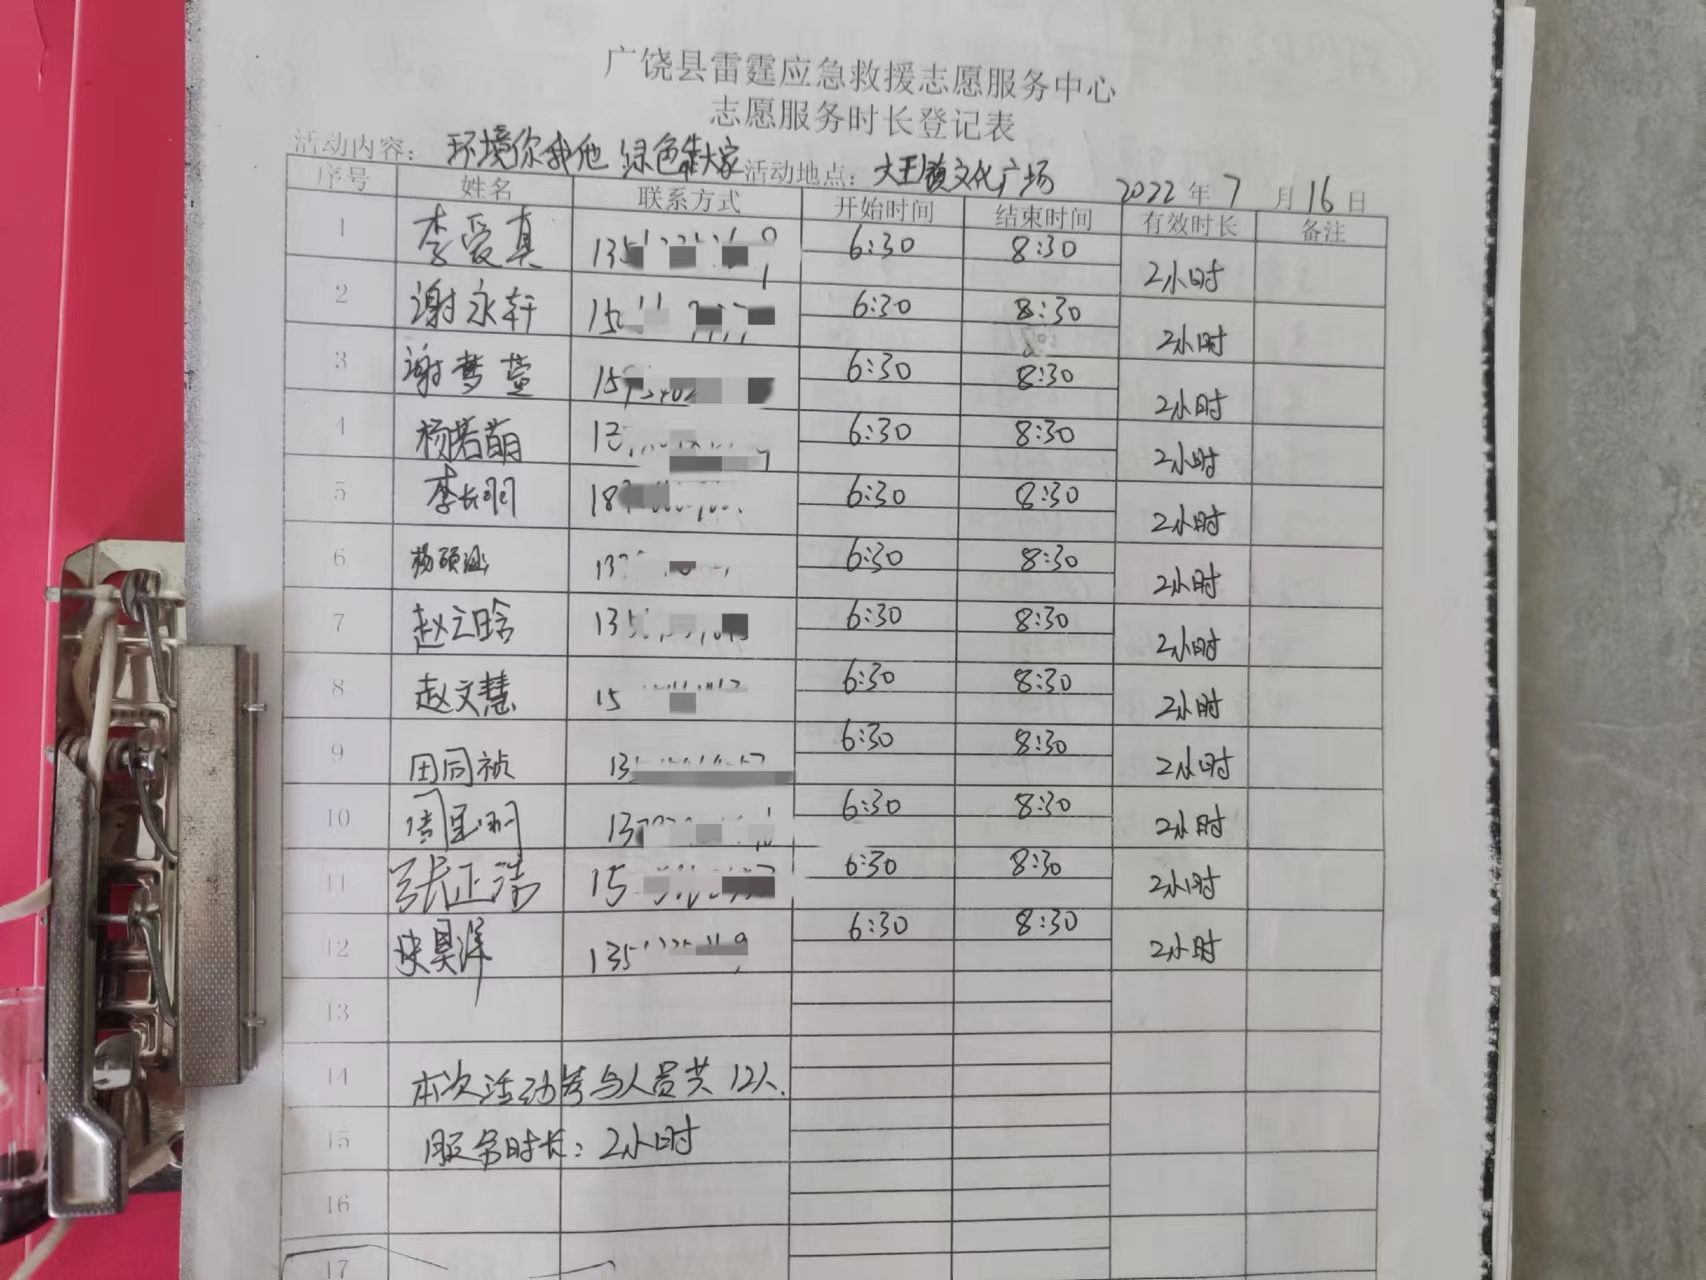 广饶县雷霆应急救援志愿服务中心
志愿服务时长登记表
活动内容： 环境你我他 绿色靠大家 活动地点： 大王镇文化广场 2022 年 7 月 16 日
序号 姓名 联系方式 开始时间 结束时间 有效时长 备注
1 李爱真 135 6:30 8:30 2小时
2 谢永轩 15 6:30 8:30 2小时
3 谢梦萱 15 6:30 8:30 2小时
4 杨若萌 6:30 8:30 2小时
5 李长羽 18 6:30 8:30 2小时
6 杨硕 13 6:30 8:30 2小时
7 赵云晗 135 6:30 8:30 2小时
8 赵文慧 15 6:30 8:30 2小时
9 田同祯 13 6:30 8:30 2小时
10 6:30 8:30 2小时
11 张正浩 15 6:30 8:30 2小时
12 昊洋 135 6:30 8:30 2小时
13
14 本次活动参与人员共 12人.
15 服务时长： 2小时
16
17